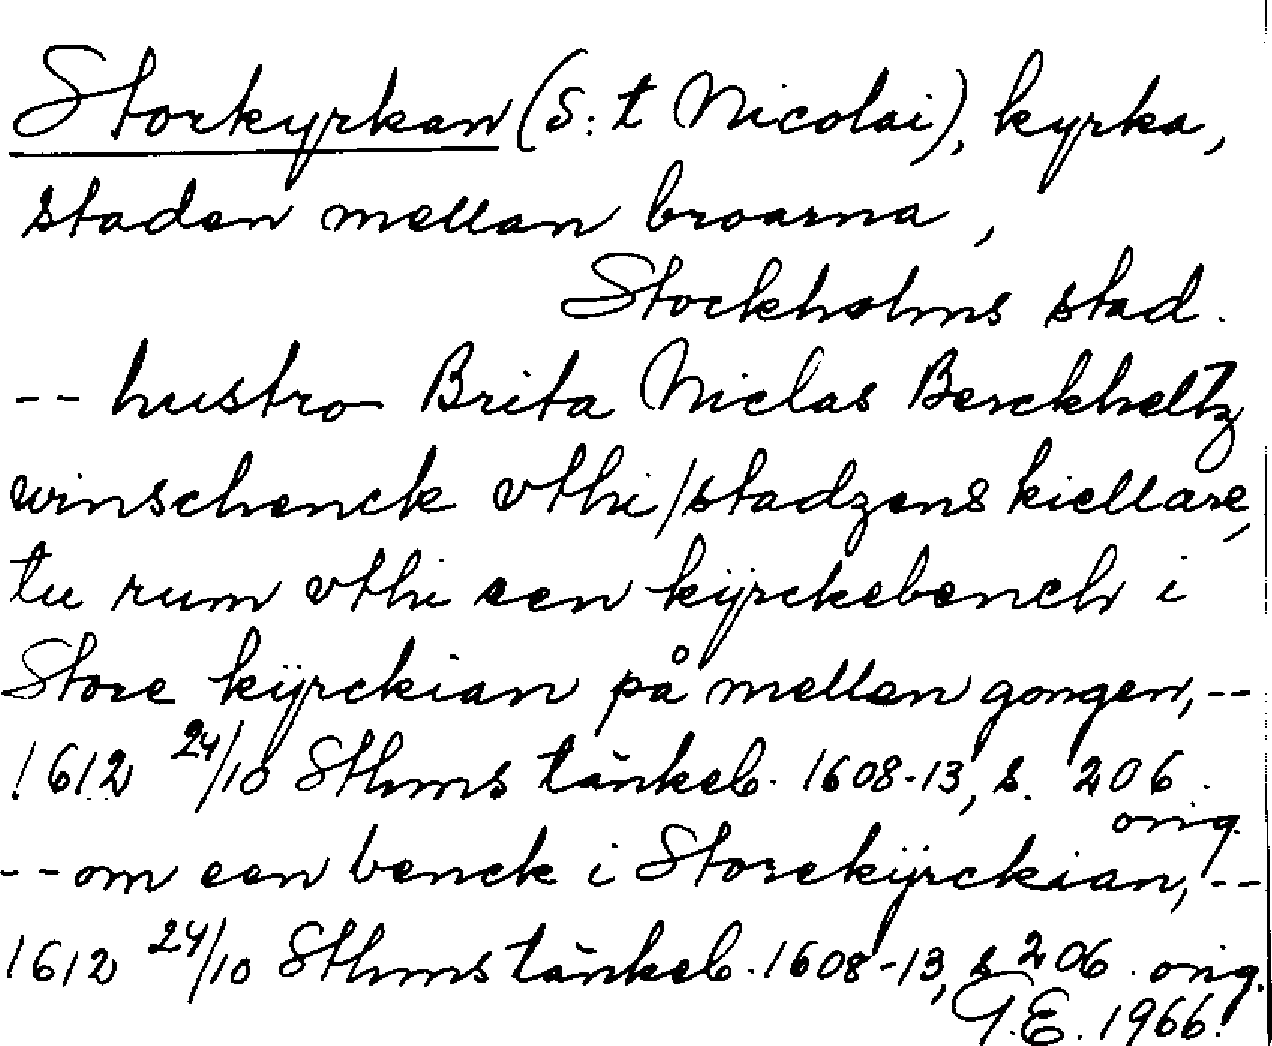 Storkyrkan (S:t Nicolai), kyrka,
staden mellan broarna,
Stockholms stad.
-- hustro Brita Niclas Berckheltz
winschenck vthi/stadzens kiellare,
tu rum vthi een kÿrckebench i
Store kÿrckian på mellen gongen, --
1612 24/10 Sthms tänkeb. 1608-13, s. 206.
orig.
-- om een benck i Storekÿrckian, --
1612 24/10 Sthms tänkeb. 1608-13, s 206. orig.
G.E. 1966.